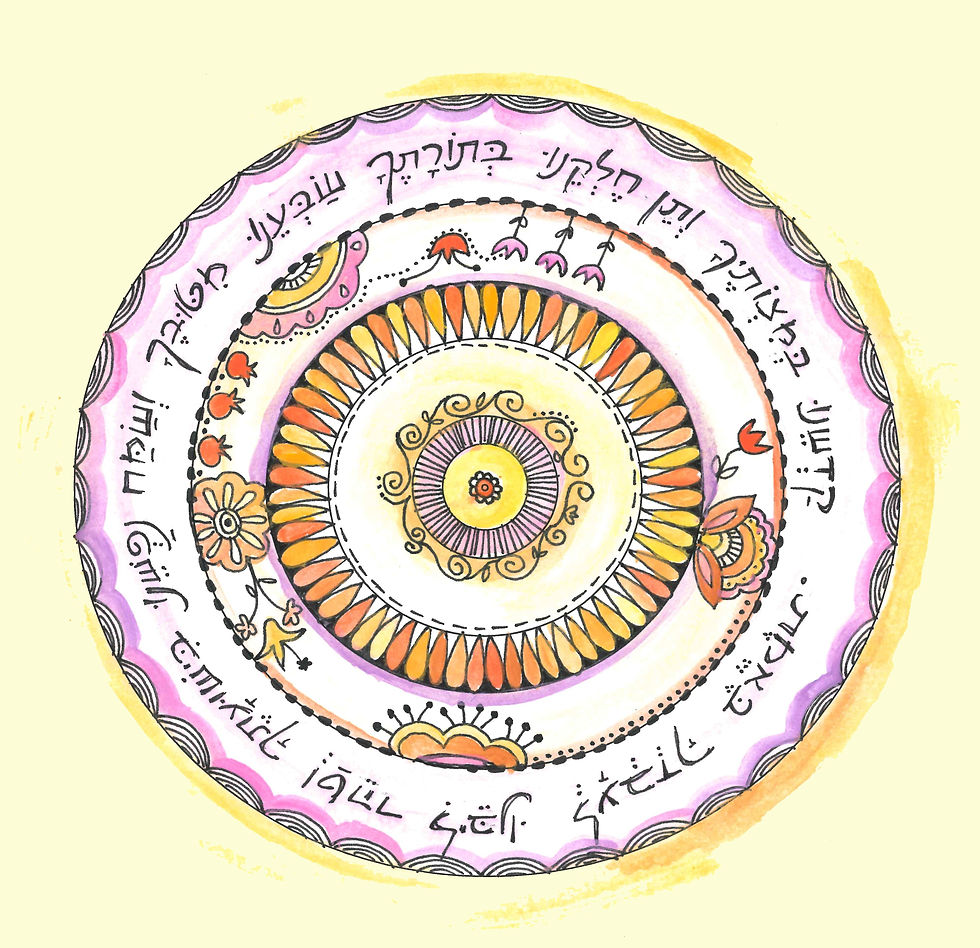 קַדְּשֵׁנוּ בְּמִצְוֹתֶיךָ וְתֵן חֶלְקֵנוּ בְּתוֹרָתֶךָ שַׂבְּעֵנוּ מִטּוּבֶךָ וְשַׂמַּח נַפְשֵׁנוּ בִּישׁוּעָתֶךָ וְטַהֵר לִבֵּנוּ לְעָבְדְּךָ בֶּאֱמֶת.